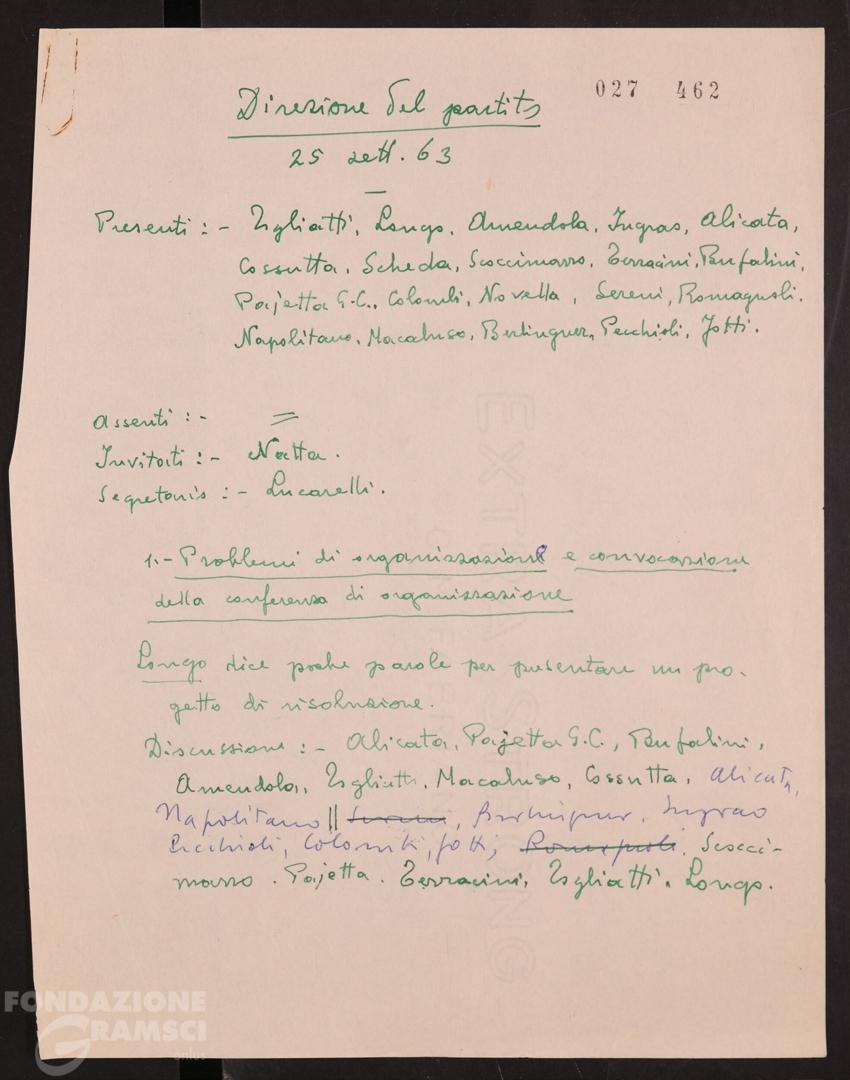 Direzione del partito
027 462
25 sett. 63
Presenti :- Togliatti, Longo, Amendola, Ingrao, Alicata,
Cossutta, Scheda, Scoccimarro, Terracini, Bufalini,
Pajetta G.C., Colombi, Novella, Sereni, Romagnoli.
Napolitano, Macaluso, Berlinguer, Pecchioli, Jotti.
Assenti :- =
Invitati :- Natta.
Segretario :- Lucarelli.
1.- Problemi di organizzazione e convocazione
della conferenza di organizzazione
Longo dice poche parole per presentare un pro-
getto di risoluzione.
Discussione :- Alicata, Pajetta G.C., Bufalini,
Amendola, Togliatti, Macaluso, Cossutta, Alicata,
Napolitano || Sereni, Berlinguer, Ingrao
Pecchioli, Colombi, Jotti, Romagnoli, Scocci-
marro. Pajetta. Terracini, Togliatti. Longo.
EXTRA STRONG
FONDAZIONE
GRAMSCI
onlus